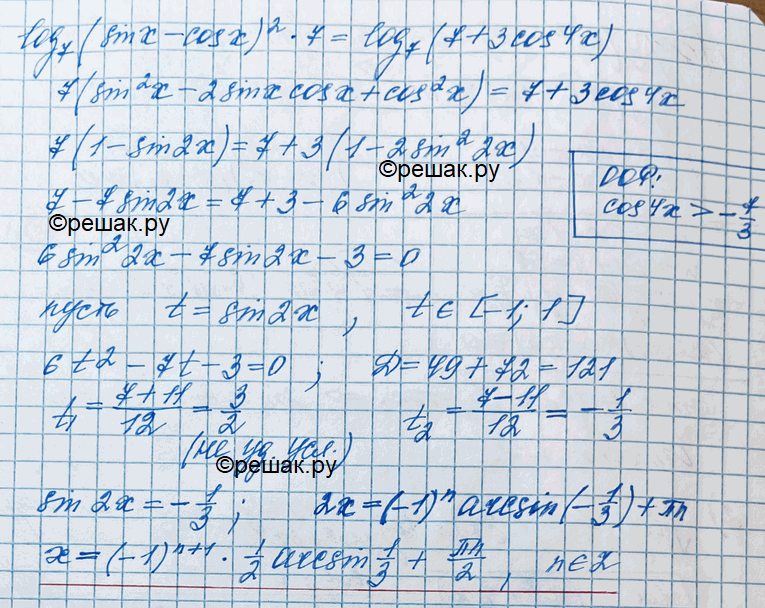 log₇(sinx-cosx)²·7 = log₇(7+3cos4x)
7(sin²x-2sinxcosx+cos²x) = 7+3cos4x
7(1-sin2x)=7+3(1-2sin²2x)
©решак.ру
ООФ:
cos4x > -7/3
7-7sin2x=7+3-6sin²2x
©решак.ру
6sin²2x-7sin2x-3=0
пусть t=sin2x, t∈[-1;1]
6t²-7t-3=0; D=49+72=121
t₁=(7+11)/12=3/2 t₂=(7-11)/12=-1/3
(не уд усл.)
©решак.ру
sin2x=-1/3; 2x=(-1)ⁿarcsin(-1/3)+πn
x=(-1)ⁿ⁺¹·1/2 arcsin 1/3 + πn/2, n∈Z